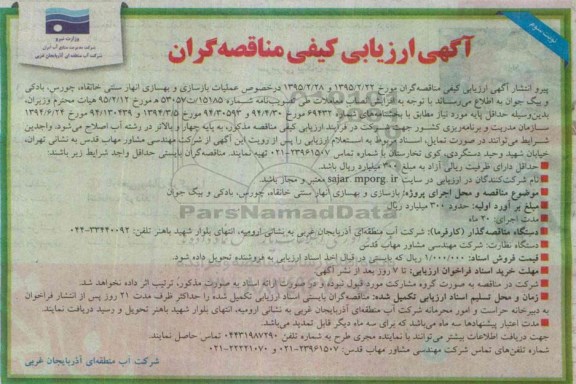 نوبت سوم
وزارت نیرو
شرکت مدیریت منابع آب ایران
شرکت آب منطقه ای آذربایجان غربی
آگهی ارزیابی کیفی مناقصه‌گران
پیرو انتشار آگهی ارزیابی کیفی مناقصه‌گران مورخ ۱۳۹۵/۲/۲۲ و ۱۳۹۵/۲/۲۸ درخصوص عملیات بازسازی و بهسازی انهار سنتی خانقاه، چورس، بادکی
و بیگ جوان به اطلاع می‌رساند با توجه به افزایش نصاب معاملات طی تصویب‌نامه شماره ۱۵۱۸۵/ت۵۳۰۵۷ه مورخ ۹۵/۲/۱۲ هیات محترم وزیران،
بدین‌وسیله حداقل پایه مورد نیاز مطابق با بخشنامه‌های شماره ۶۹۴۳۲ مورخ ۹۴/۴/۳۰ و ۹۴/۳۰۵۹۳ مورخ ۱۳۹۴/۳/۵ و ۹۲/۱۳۰۴۳۹ مورخ ۱۳۹۴/۶/۲۴
سازمان مدیریت و برنامه‌ریزی کشور جهت شرکت در فرایند ارزیابی کیفی مناقصه مذکور، به پایه چهار و بالاتر در رشته آب اصلاح می‌شود. واجدین
شرایط می‌توانند در صورت تمایل، اسناد مربوط به استعلام ارزیابی را پس از رویت این آگهی از شرکت مهندسی مشاور مهاب قدس به نشانی تهران،
خیابان شهید وحید دستگردی، کوی تخارستان با شماره تماس ۲۳۹۶۱۵۰۷-۰۲۱ تهیه نمایند. مناقصه‌گران بایستی حداقل واجد شرایط زیر باشند:
■ حداقل دارای ظرفیت ریالی آزاد به مبلغ ۳۰۰ میلیارد ریال باشد.
■ نام شرکت‌کنندگان در ارزیابی در سایت sajar.mporg.ir معتبر و مجاز باشد.
■ موضوع مناقصه و محل اجرای پروژه: بازسازی و بهسازی انهار سنتی خانقاه، چورس، بادکی و بیگ جوان
■ مبلغ بر آورد اولیه: حدود ۳۰۰ میلیارد ریال
مدت اجرای: ۲۰ ماه
■ دستگاه مناقصه گذار (کارفرما): شرکت آب منطقه‌ای آذربایجان غربی به نشانی ارومیه، انتهای بلوار شهید باهنر تلفن: ۳۳۴۴۰۰۹۲-۰۴۴
دستگاه نظارت: شرکت مهندسی مشاور مهاب قدس
■ قیمت فروش اسناد: ۱/۰۰۰/۰۰۰ ریال که بایستی در قبال اخذ اسناد ارزیابی به فروشنده تحویل داده شود.
■ مهلت خرید اسناد فراخوان ارزیابی: تا ۷ روز بعد از نشر آگهی
شرکت در مناقصه به صورت گروه مشارکت مورد قبول نبوده و در صورت ارائه اسناد به صورت مذکور، ترتیب اثر داده نخواهد شد.
■ زمان و محل تسلیم اسناد ارزیابی تکمیل شده: مناقصه‌گران بایستی اسناد ارزیابی تکمیل شده را حداکثر ظرف مدت ۲۱ روز پس از انتشار فراخوان
به دبیرخانه حراست و امور محرمانه شرکت آب منطقه‌ای آذربایجان غربی به نشانی ارومیه، انتهای بلوار شهید باهنر تحویل و رسید دریافت نمایند.
■ مدت اعتبار پیشنهادها سه ماه می‌باشد که برای سه ماه دیگر قابل تمدید می‌باشد.
جهت دریافت اطلاعات بیشتر می‌توانند با نماینده مجری طرح به شماره تلفن ۰۴۴۳۱۹۸۷۲۹۰ تماس حاصل نمایند.
شماره تلفن‌های تماس شرکت مهندسی مشاور مهاب قدس: ۲۳۹۶۱۵۰۷-۰۲۱ و ۲۲۲۲۱۰۷۰-۰۲۱
شرکت آب منطقه‌ای آذربایجان غربی
ParsNamadData